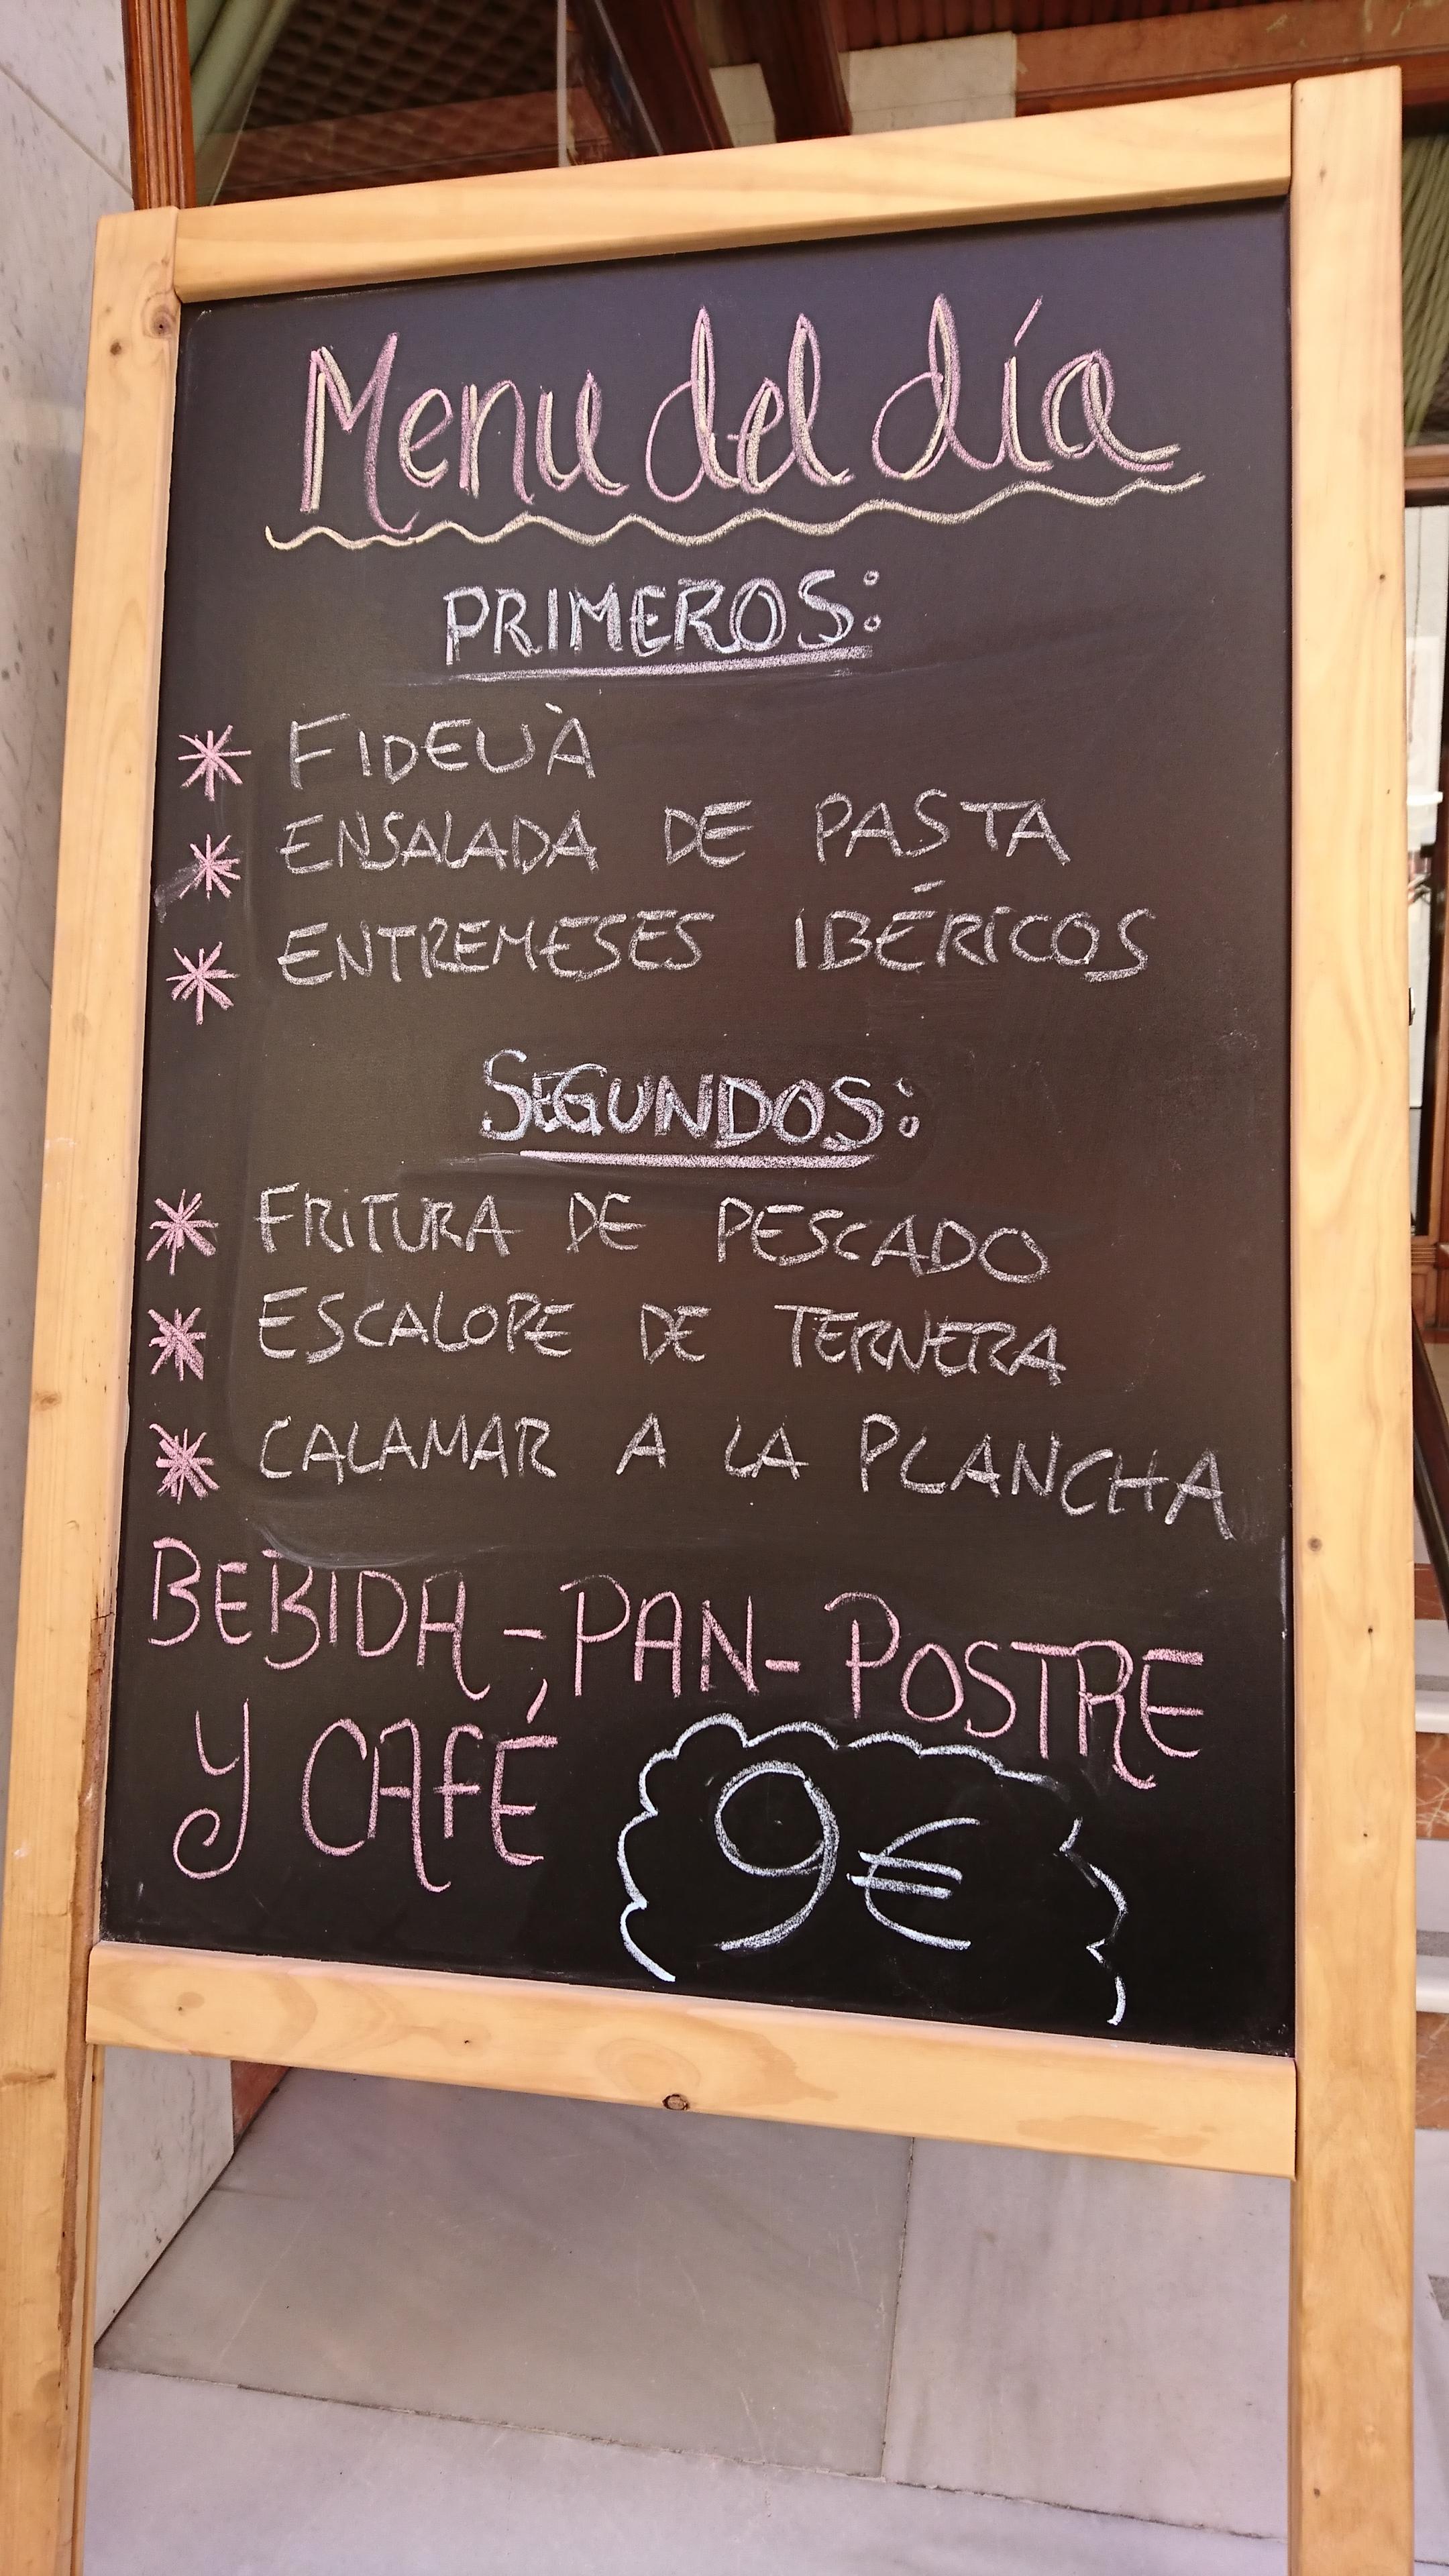 Menu del día
PRIMEROS:
* FIDEUÀ
* ENSALADA DE PASTA
* ENTREMESES IBÉRICOS
SEGUNDOS:
* FRITURA DE PESCADO
* ESCALOPE DE TERNERA
* CALAMAR A LA PLANCHA
BEBIDA - PAN - POSTRE
Y CAFÉ 9€